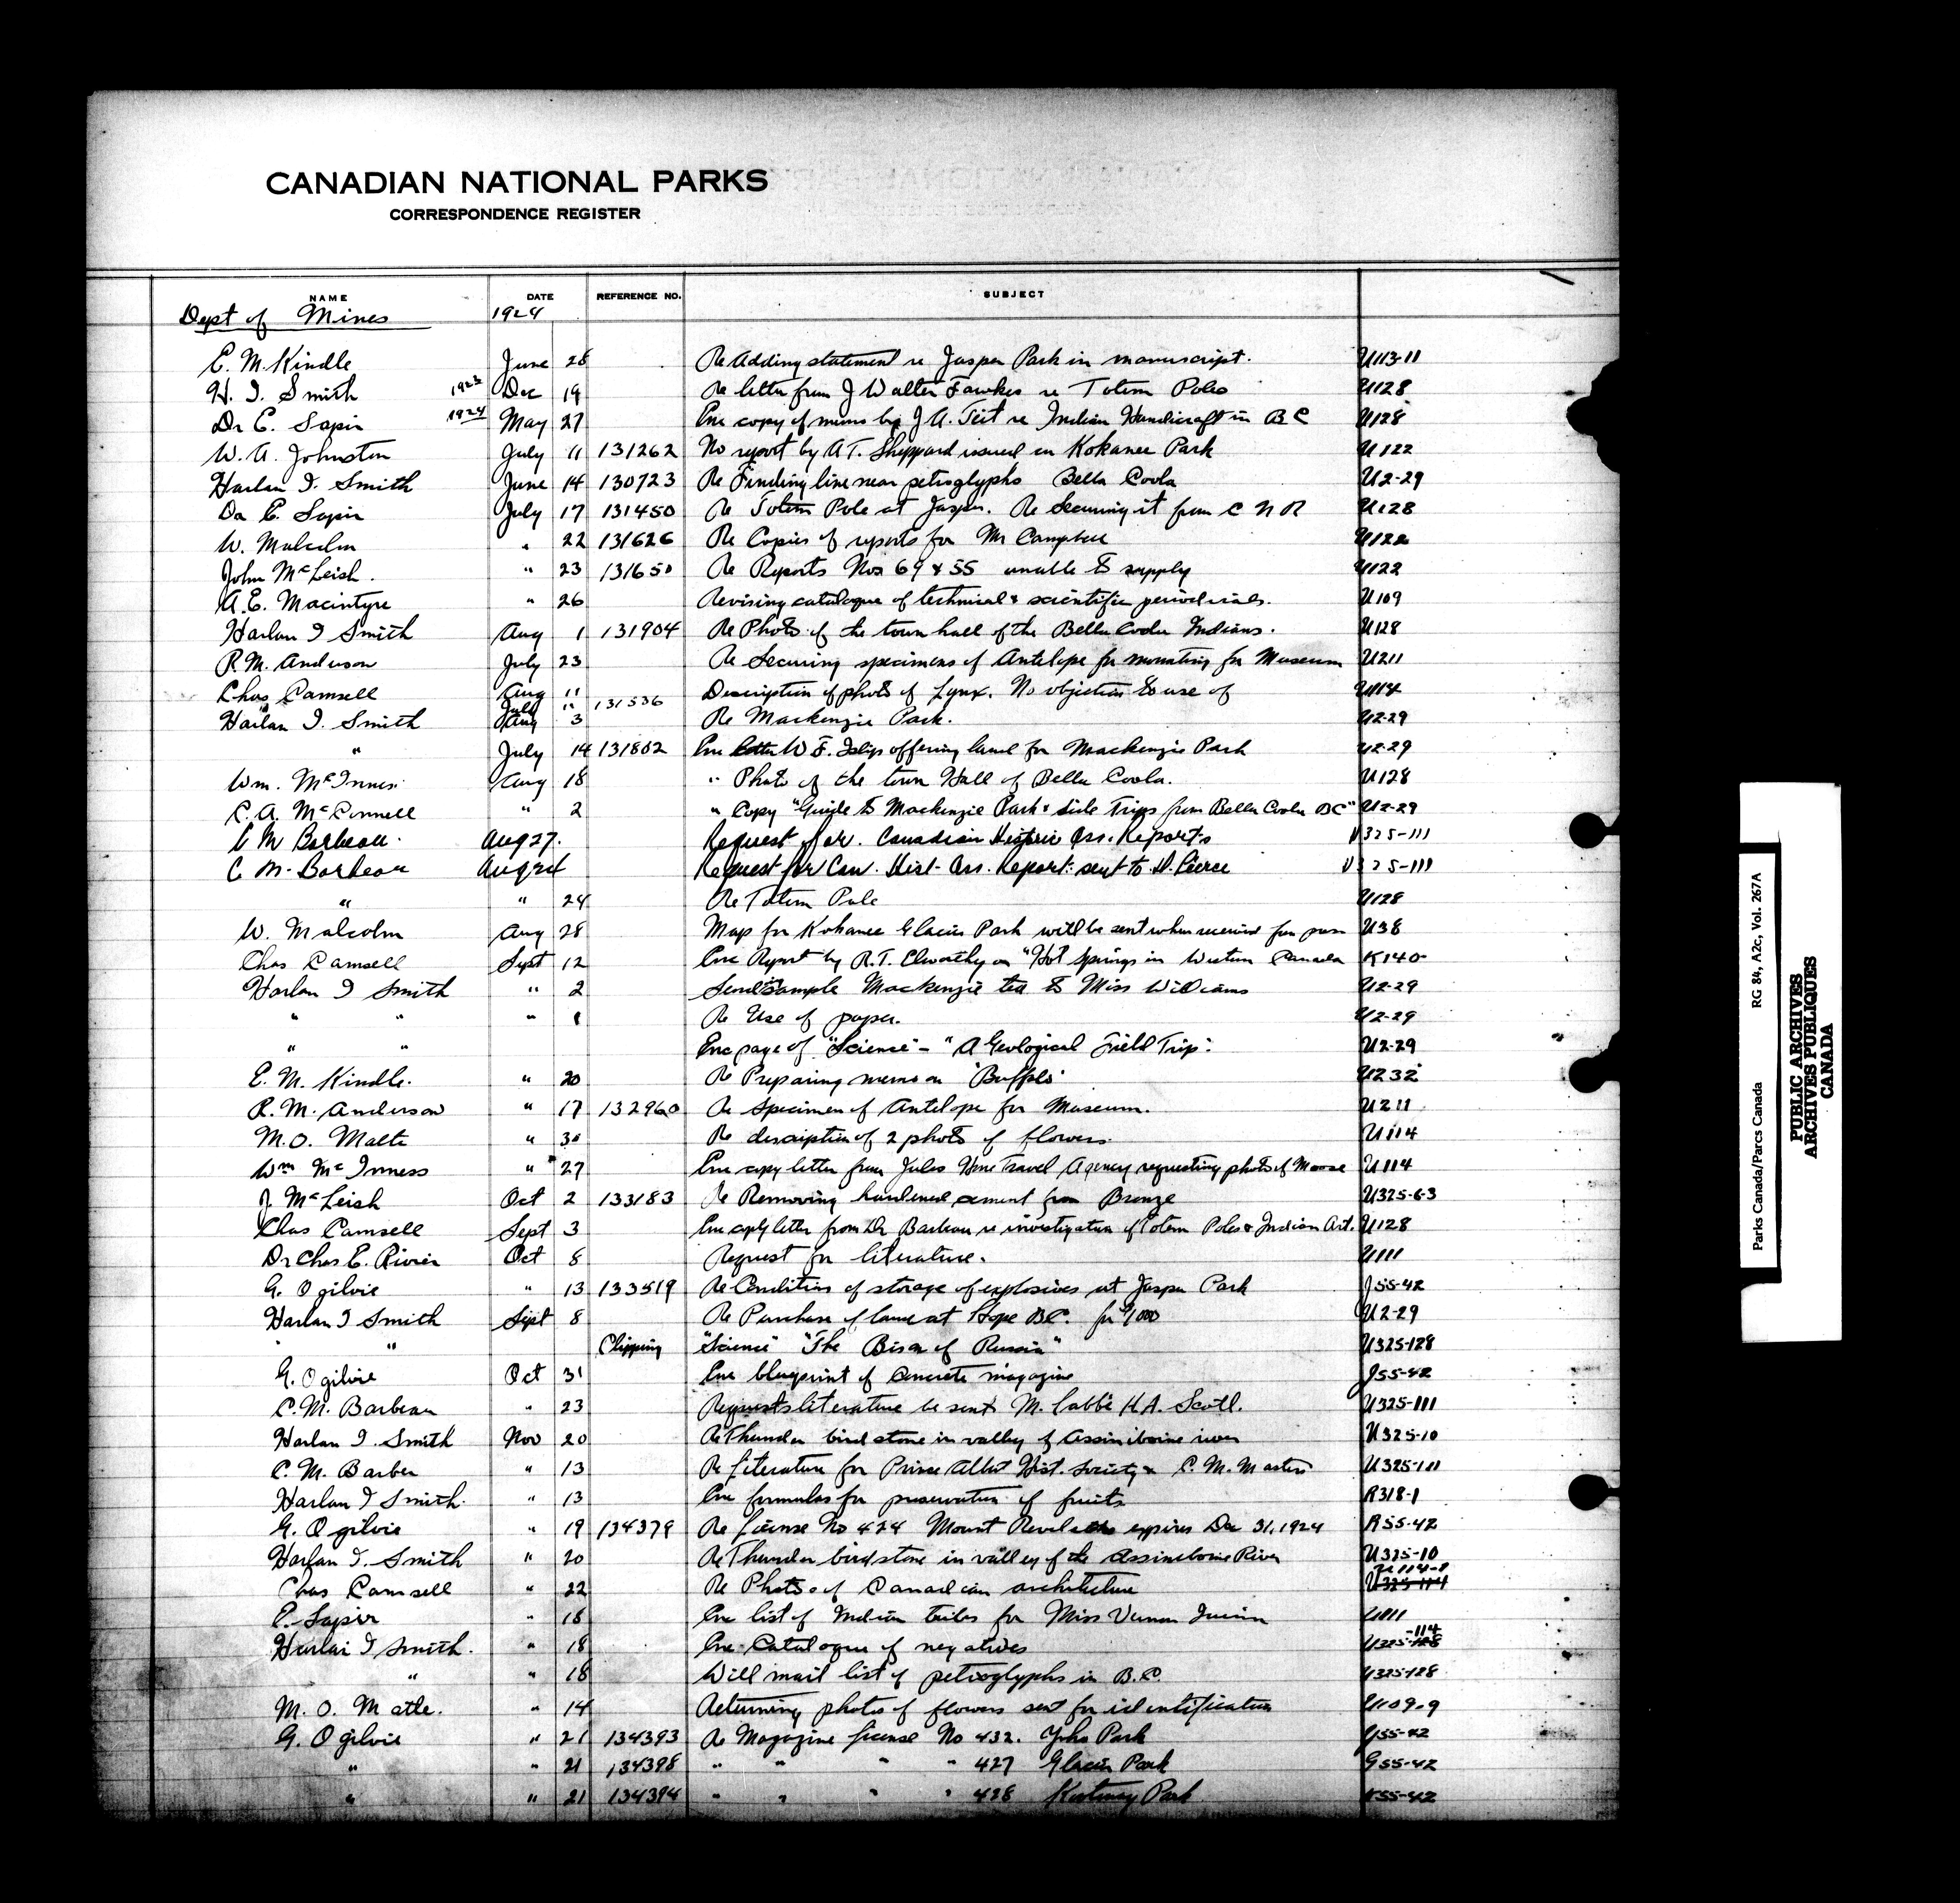 CANADIAN NATIONAL PARKS
CORRESPONDENCE REGISTER
NAME DATE REFERENCE NO. SUBJECT
Dept of Mines 1924
E. M. Kindle June 28 Re Adding statement re Jasper Park in manuscript. U113-11
H. I. Smith 1923 Dec 19 Re letter from J Walter Fawkes re Totem Poles U128
Dr E. Sapir 1924 May 27 Enc copy of memo by J A. Teit re Indian Handicraft in B C U128
W. A. Johnston July 11 131262 No report by A T. Sheppard issued on Kokanee Park U122
Harlan I. Smith June 14 130723 Re Finding line near petroglyphs Bella Coola U2-29
Dr E. Sapir July 17 131450 Re Totem Pole at Jasper. Re Securing it from C N R U128
W. Malcolm " 22 131626 Re Copies of reports for Mr Campbell U122
John McLeish. " 23 131650 Re Reports Nos 69 & 55 unable to supply U122
A. E. Macintyre " 26 Revising catalogue of technical & scientific periodicals. U109
Harlan I Smith Aug 1 131904 Re Photo of the town hall of the Bella Coola Indians. U128
R. M. Anderson July 23 Re Securing specimens of Antelope for mounting for Museum U211
Chas Camsell Aug 11 Description of photo of Lynx. No objection to use of U114
July " 131536
Harlan I. Smith Aug 3 Re Mackenzie Park. U2-29
" July 14 131802 Enc letter W F. Islip offering land for Mackenzie Park U2-29
Wm. McInnes Aug 18 " Photo of the town Hall of Bella Coola. U128
C. A. McConnell " 2 " Copy "Guide to Mackenzie Park & side Trips from Bella Coola BC" U2-29
C M Barbeau. Aug 27. Request for. Canadian Historic Ass. Reports U325-111
C M. Barbeau Aug 26 Request for Can. Hist. Ass. Report: sent to D. Pierce U325-111
" " 24 Re Totem Pole U128
W. Malcolm Aug 28 Map for Kokanee Glacier Park will be sent when received from press U38
Chas Camsell Sept 12 Enc Report by R. T. Elworthy on "Hot Springs in Western Canada K140
Harlan I Smith " 2 Send sample Mackenzie tea to Miss Williams U2-29
" " " 1 Re Use of paper. U2-29
" " Enc page of "Science" – "A Geological Field Trip". U2-29
E. M. Kindle. " 20 Re Preparing memo on "Buffalo" U232
R. M. Anderson " 17 132960 Re Specimen of Antelope for Museum. U211
M. O. Malte " 30 Re description of 2 photos of flowers. U114
Wm McInness " 27 Enc copy letter from Jules Hone Travel Agency requesting photo of Moose U114
J. McLeish Oct 2 133183 Re Removing hardened cement from Bronze U325-63
Chas Camsell Sept 3 Enc copy letter from Dr Barbeau re investigation of Totem Poles & Indian Art. U128
Dr Chas E. Rivier Oct 8 Request for literature. U111
G. Ogilvie " 13 133519 Re Condition of storage of explosives at Jasper Park J55-42
Harlan I Smith Sept 8 Re Purchase of land at Hope BC. for $1000 U2-29
" Clipping "Science" "The Bison of Russia" U325-128
G. Ogilvie Oct 31 Enc blueprint of concrete magazine J55-42
C. M. Barbeau " 23 Requests literature be sent M. l'abbé H. A. Scott. U325-111
Harlan I. Smith Nov 20 Re Thunder bird stone in valley of Assiniboine river U325-10
C. M. Barber " 13 Re literature for Prince Albert Hist. Society & C. M. Masters U325-111
Harlan I Smith. " 13 Enc formulas for preservation of fruits R318-1
G. Ogilvie " 19 134379 Re License No 424 Mount Revelstoke expires Dec 31, 1924 R55-42
Harlan I. Smith " 20 Re Thunder bird stone in valley of the Assineboine River U325-10
Chas Camsell " 22 Re Photos of Canadian architecture U114-8 U325-114
E. Sapir " 18 Enc list of Indian tribes for Miss U111
Harlan I Smith. " 18 Enc Catalogue of negatives U325-128 -114
" " 18 Will mail list of petroglyphs in B.C. U325-128
M. O. Matle. " 14 Returning photos of flowers sent for identification U109-9
G. Ogilvie " 21 134393 Re Magazine license No 432. Yoho Park Y55-42
" " 21 134398 " " " " 427 Glacier Park G55-42
" " 21 134394 " " " " 428 Kootenay Park K55-42
Parks Canada/Parcs Canada RG 84, A2c, Vol. 267A
PUBLIC ARCHIVES
ARCHIVES PUBLIQUES
CANADA